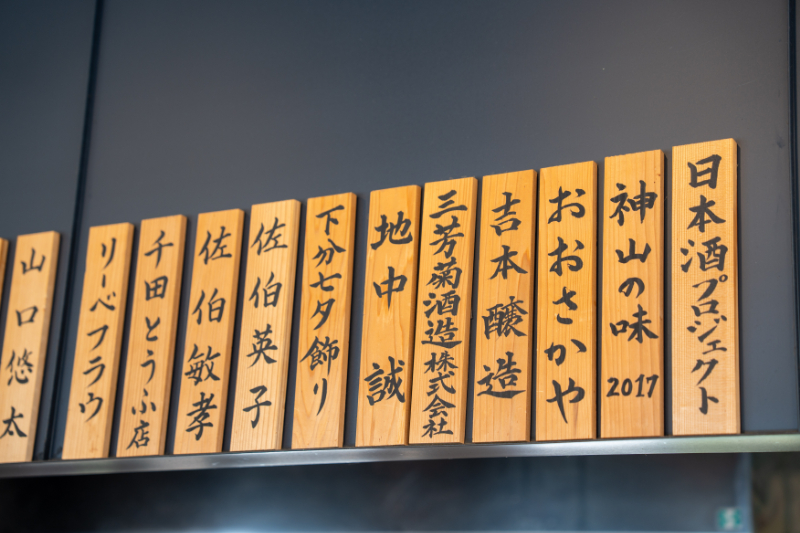 日本酒プロジェクト
神山の味2017
おおさかや
吉本醸造
三芳菊酒造株式会社
地中誠
下分七夕飾り
佐伯英子
佐伯敏孝
千田とうふ店
リーベフラウ
山口悠太